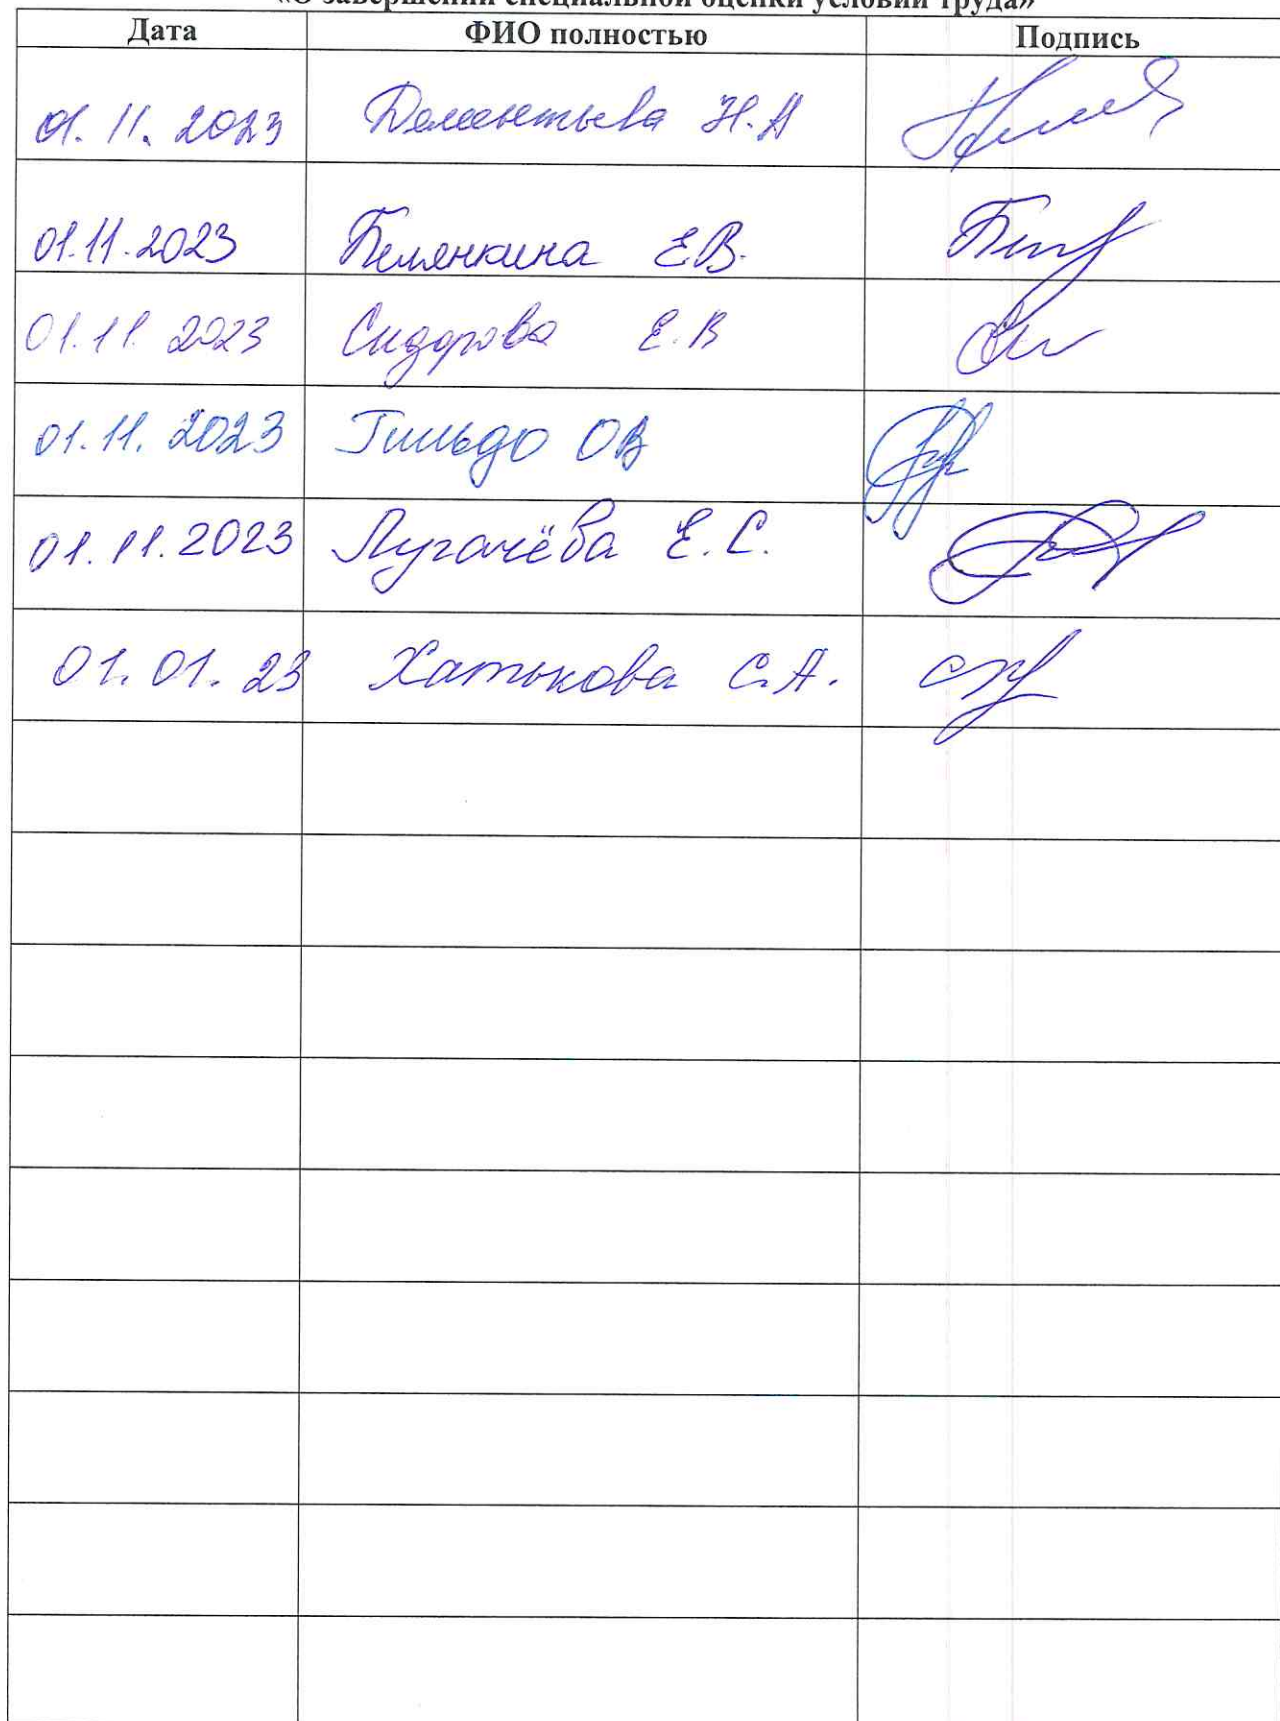 «О завершении специальной оценки условий труда»
Дата ФИО полностью Подпись
01.11.2023 Дементьева Н.А
01.11.2023 Белянкина Е.В.
01.11.2023 Сидорова Е.В
01.11.2023 Гильдо ОВ
01.11.2023 Лугачёва Е.С.
01.01.23 Хатькова С.А.